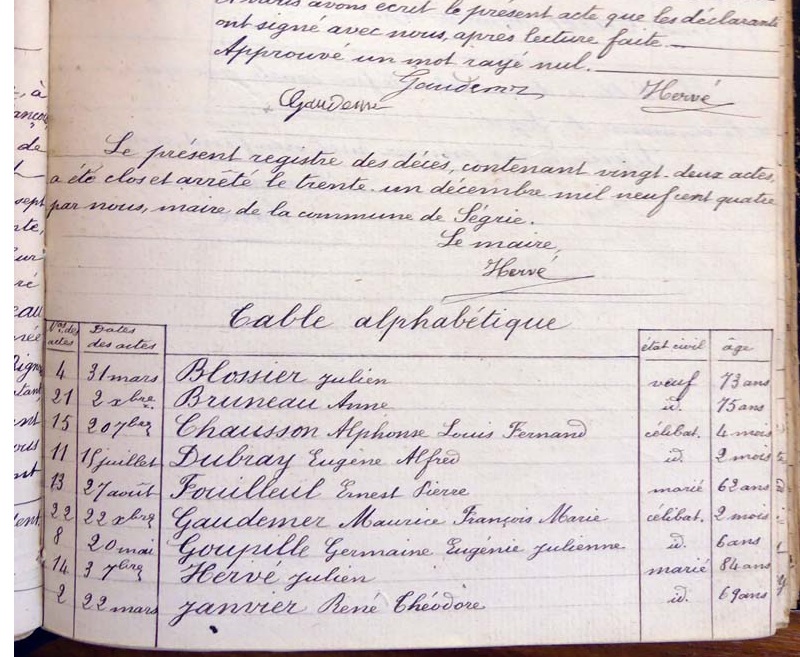 avons écrit le présent acte que les déclarants
ont signé avec nous, après lecture faite.
Approuvé un mot rayé nul.
Gaudemer Hervé
Gaudemer
Le présent registre des décès, contenant vingt-deux actes,
a été clos et arrêté le trente-un décembre mil neuf cent quatre
par nous, maire de la commune de Ségrie.
Le maire,
Hervé
Table alphabétique
Nos des actes Dates des actes état civil âge
4 31 mars Blossier Julien veuf 73 ans
21 2 xbre. Bruneau Anne id. 75 ans
15 20 7bre Chausson Alphonse Louis Fernand célibat. 4 mois
11 15 juillet Dubray Eugène Alfred id. 2 mois
13 27 août Fouilleul Ernest Pierre marié 62 ans
22 22 xbre Gaudemer Maurice François Marie célibat. 2 mois
8 20 mai Goupille Germaine Eugénie Julienne id. 6 ans
14 3 7bre Hervé Julien marié 84 ans
2 22 mars Janvier René Théodore id. 69 ans